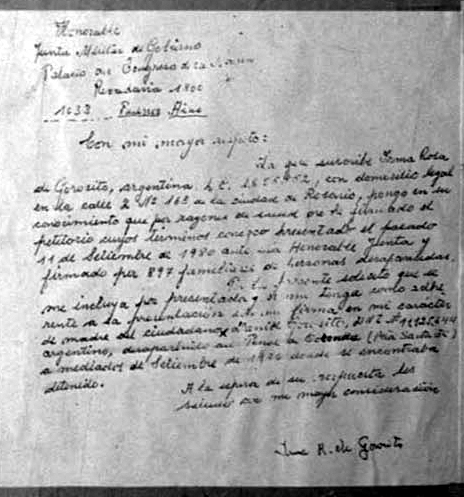 Honorable
Junta Militar de Gobierno
Palacio del Congreso de la
Rivadavia 1800
1033 Buenos Aires
Con mi mayor respeto:
La que suscribe Irma Rosa
de Gorosito, argentina L.C. con domicilio legal
en la calle 2 Nº 165 de la ciudad de Rosario, pongo en su
conocimiento que por razones de salud no he firmado el
petitorio cuyos términos conozco presentado el pasado
11 de Setiembre de 1980 ante esa Honorable Junta y
firmado por 897 familiares de personas desaparecidas.
Por la presente solicito que se
me incluya por presentada y se me tenga como adhe
rente a la presentación con mi firma en mi carácter
de madre del ciudadano Gorosito, DNI
argentino, desaparecido en Penal de Coronda (Pcia Santa Fe)
a mediados de Setiembre de donde se encontraba
detenido.
A la espera de su respuesta les
saludo con mi mayor consideración
R. de Gorosito